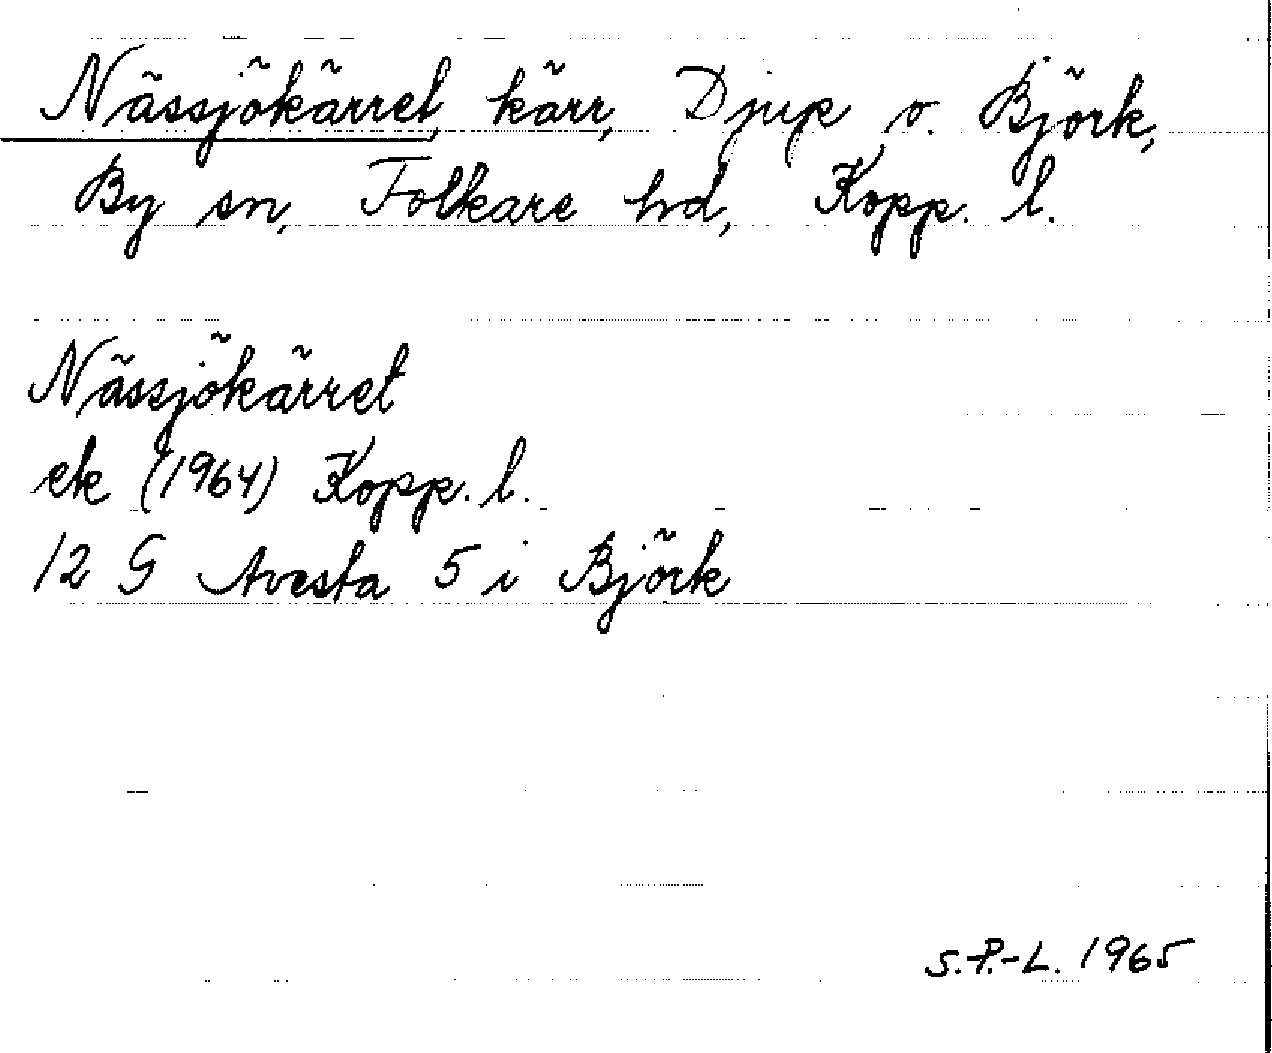 Nässjökärret, kärr, Djup o. Björk,
By sn, Folkare hd, Kopp. l.
Nässjökärret
ek (1964) Kopp. l.
12 G Avesta 5 i Björk
S.-P.-L. 1965